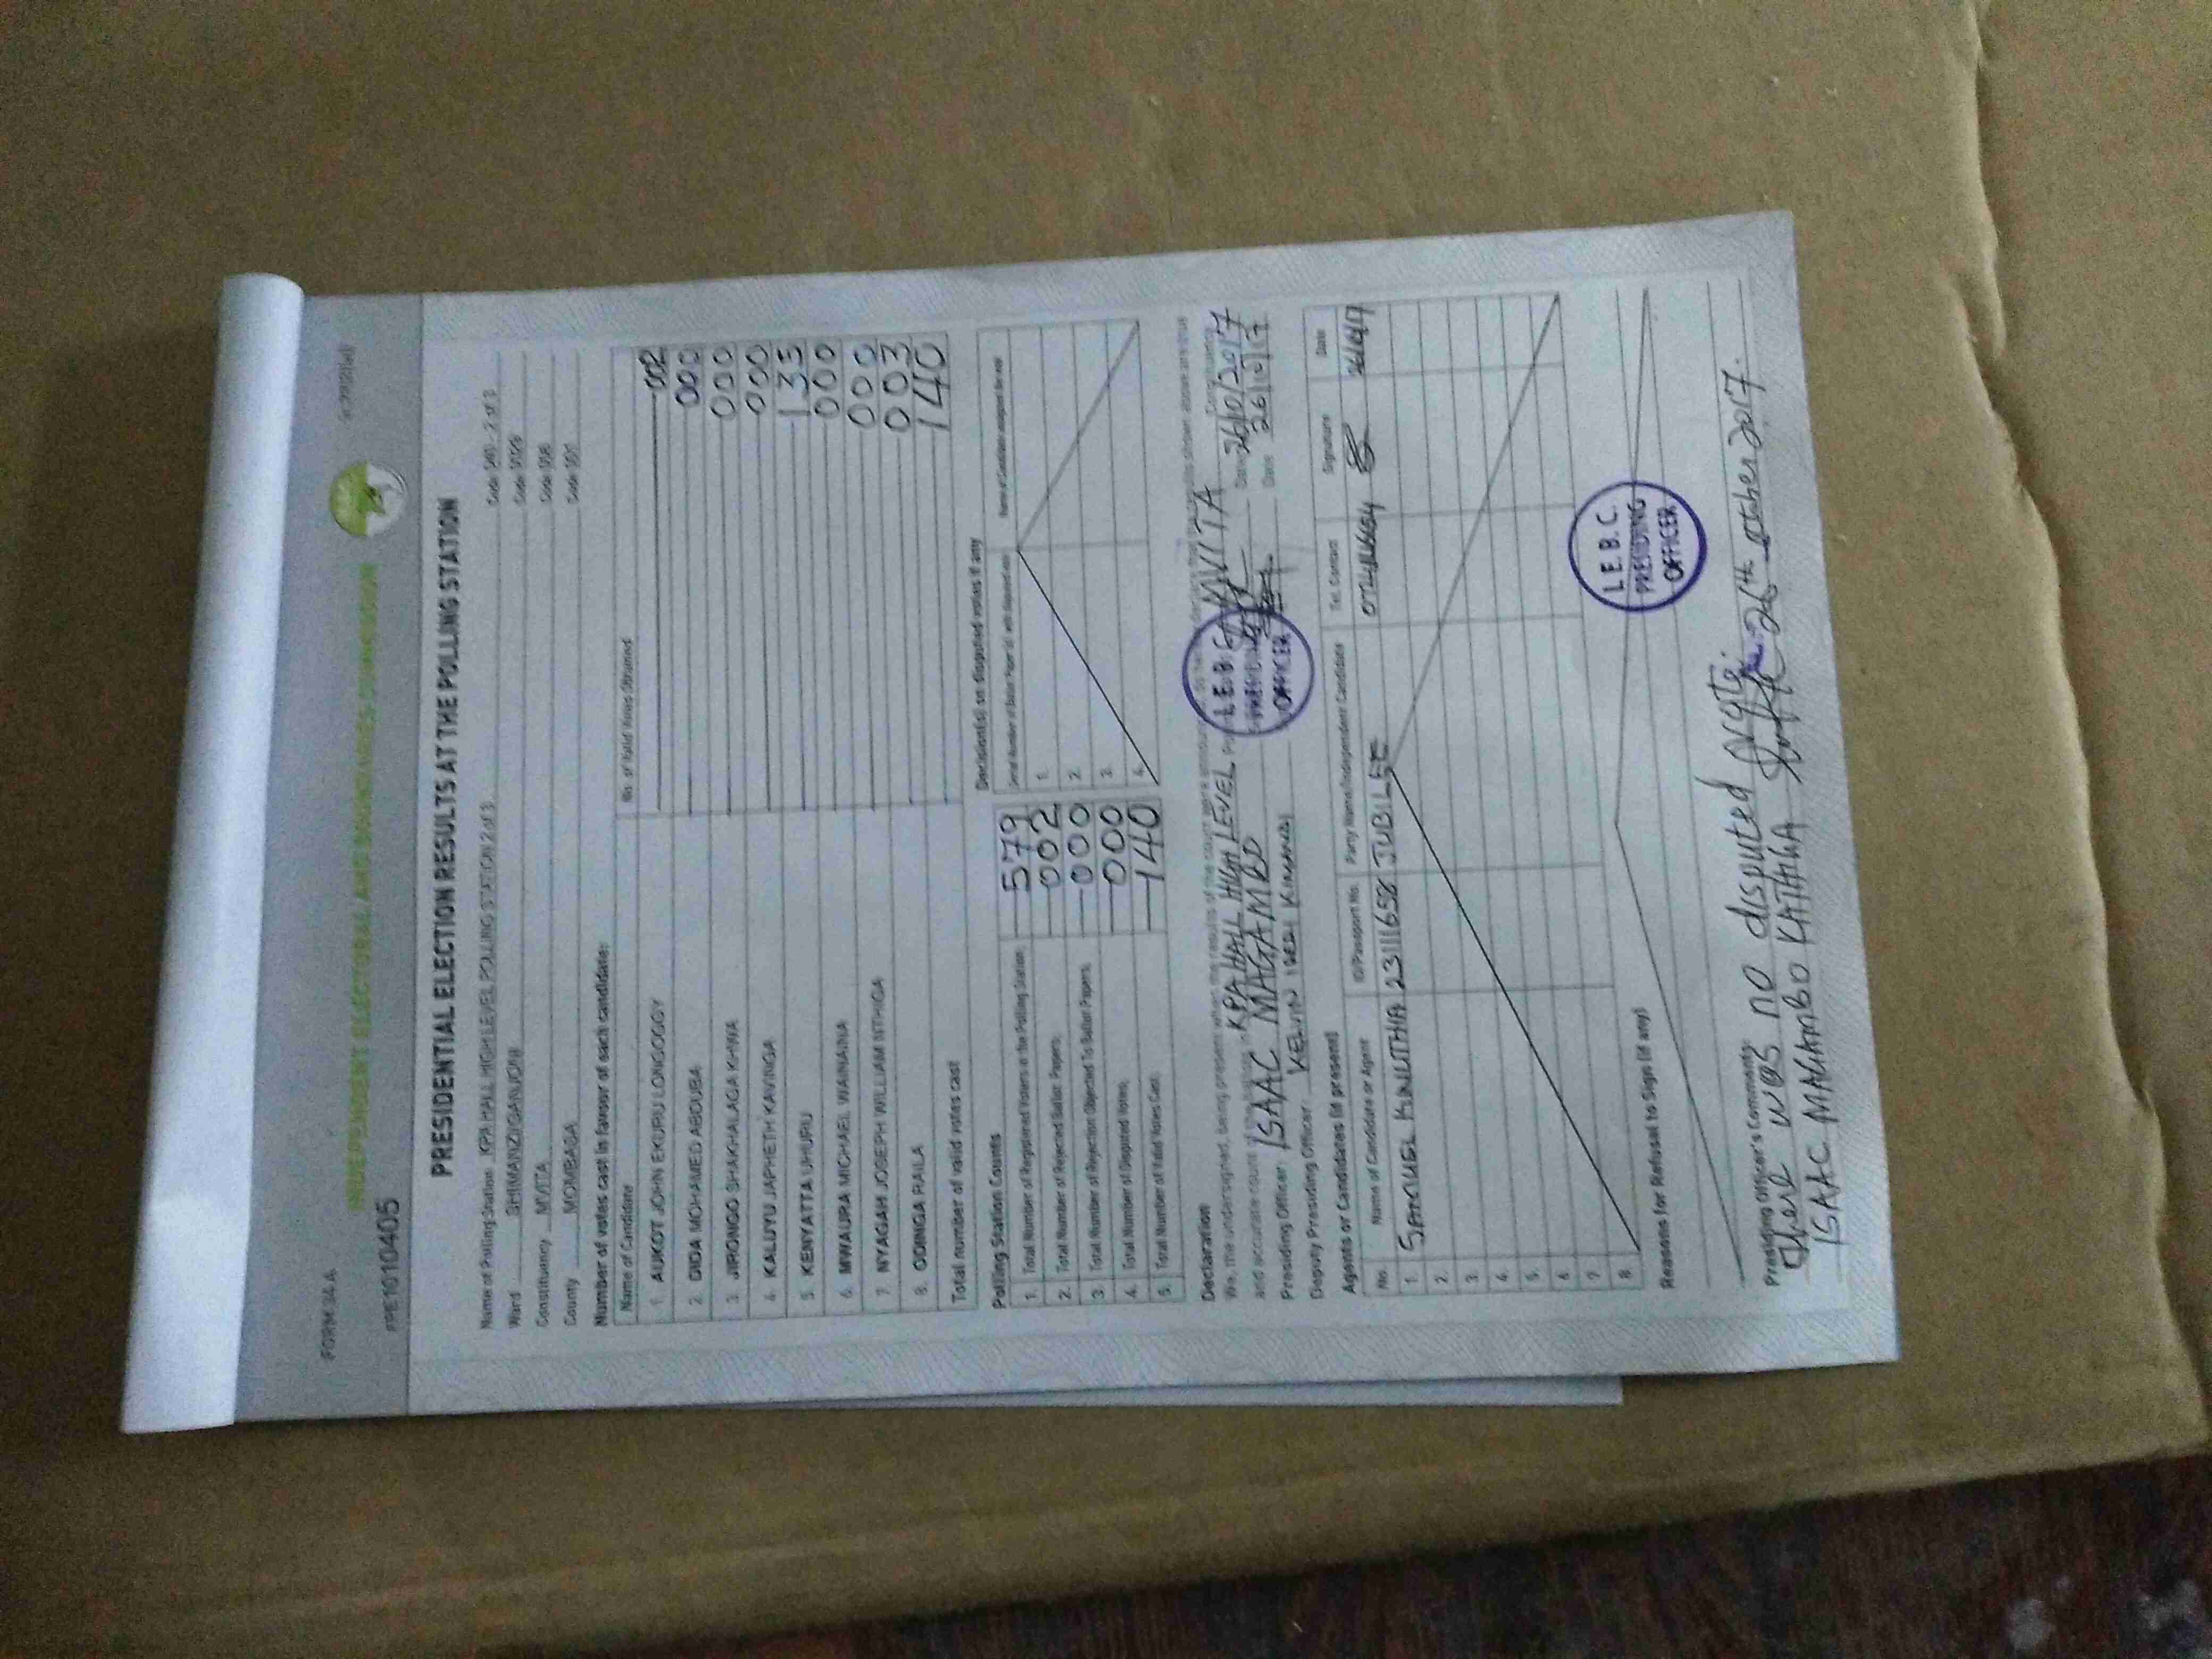 FORM 34A
INDEPENDENT ELECTORAL AND BOUNDARIES COMMISSION
PRE1010405
PRESIDENTIAL ELECTION RESULTS AT THE POLLING STATION
Name of Polling Station KPA HALL HIGH LEVEL POLLING STATION 2 of 3 Code 2 of 3
Ward SHIMANZI/GANJONI Code
Constituency MVITA Code
County MOMBASA Code 001
Number of votes cast in favour of each candidate:
Name of Candidate No. of Valid Votes Obtained
1. AUKOT JOHN EKURU LONGOGGY 002
2. DIDA MOHAMED ABDUBA 000
3. JIRONGO SHAKHALAGA KHWA 000
4. KALUYU JAPHETH KAVINGA 000
5. KENYATTA UHURU 135
6. MWAURA MICHAEL WAINAINA 000
7. NYAGAH JOSEPH WILLIAM NTHIGA 000
8. ODINGA RAILA 003
Total number of valid votes cast 140
Polling Station Counts
1. Total Number of Registered Voters in the Polling Station 579
2. Total Number of Rejected Ballot Papers 002
3. Total Number of Rejection Objected To Ballot Papers 000
4. Total Number of Disputed Votes 000
5. Total Number of Valid Votes Cast 140
Decision(s) on disputed votes if any
1.
2.
3.
4.
Declaration
We, the undersigned, being present when the results of the count were
and accurate count of the ballots in KPA HALL HIGH LEVEL MVITA Constituency
Presiding Officer: ISAAC MAGAMBO Date 26/10/2017
Deputy Presiding Officer: KELVIN KIMANI Date 26/10/17
I.E.B.C.
PRESIDING
OFFICER
Agents or Candidates (if present)
No. Name of Candidate or Agent ID/Passport No. Party Name/Independent Candidate Tel. Contact Signature Date
1. SAMUEL KINUTHIA 23111658 JUBILEE
2.
3.
4.
5.
6.
7.
8.
Reasons for Refusal to Sign (if any)
I.E.B.C.
PRESIDING
OFFICER
Presiding Officer's Comments:
There was no disputed
ISAAC MAGAMBO KATHIHA 26th october 2017.